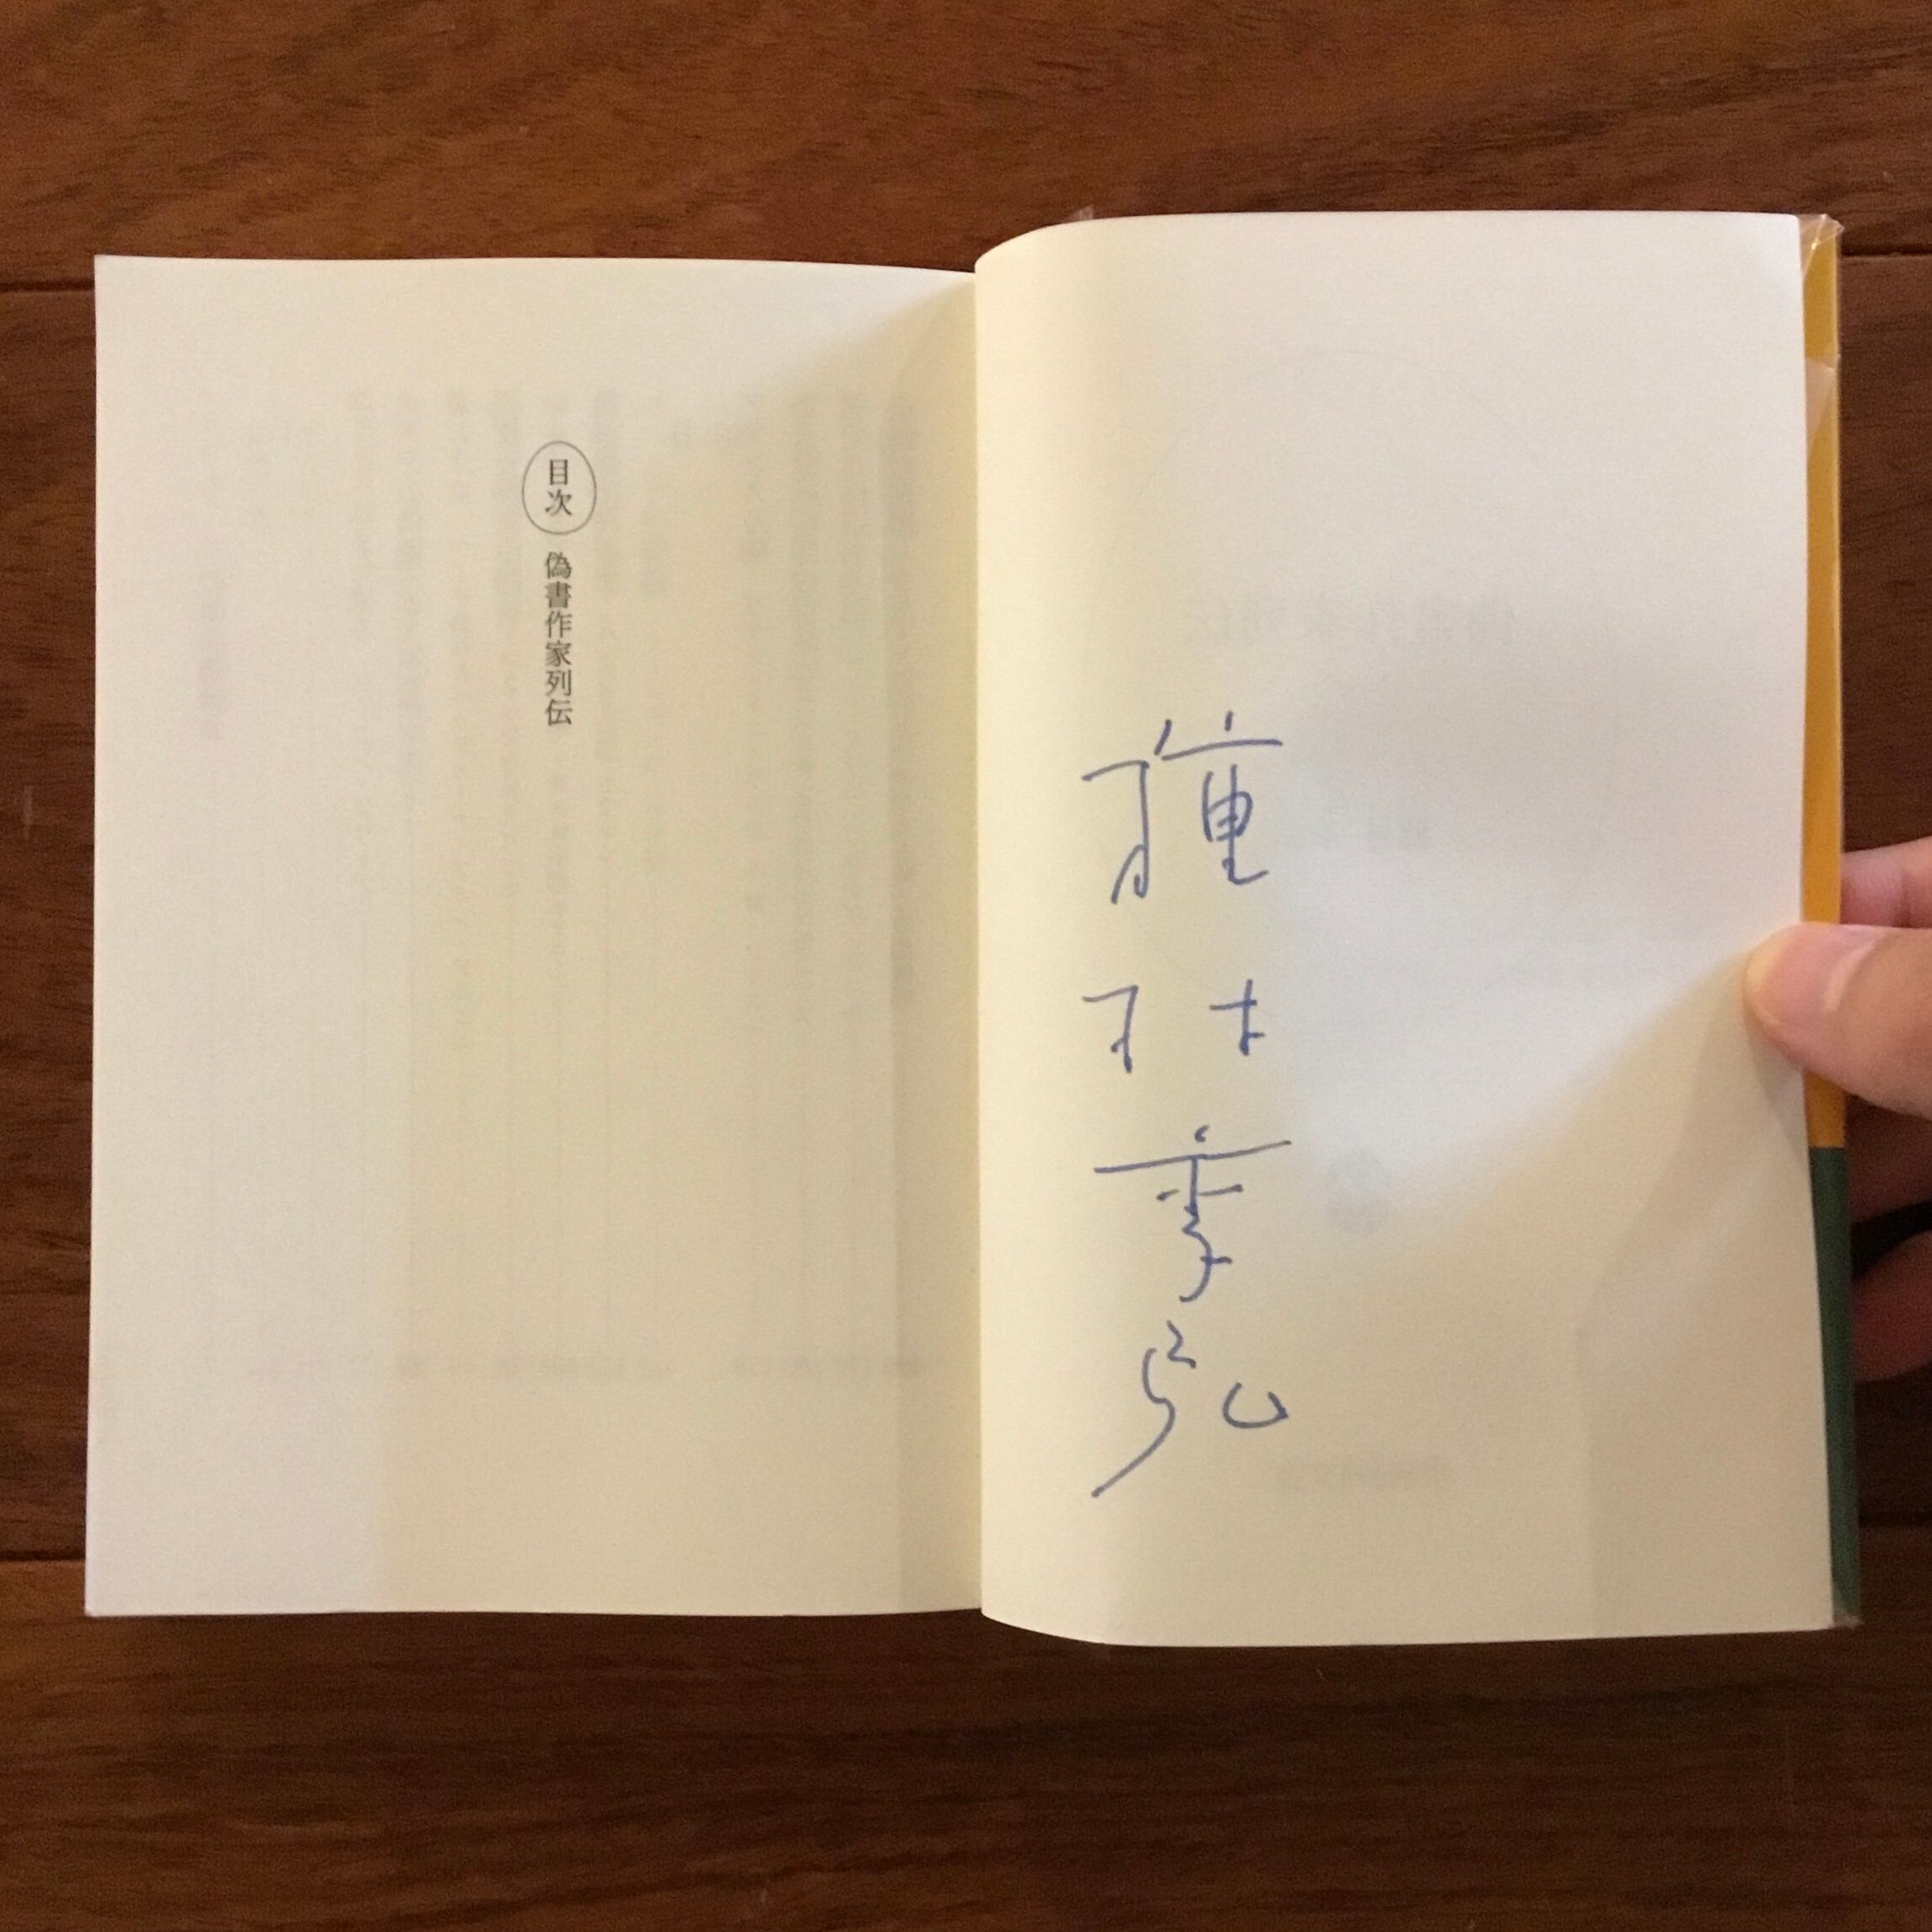 種村季弘
目次 偽書作家列伝